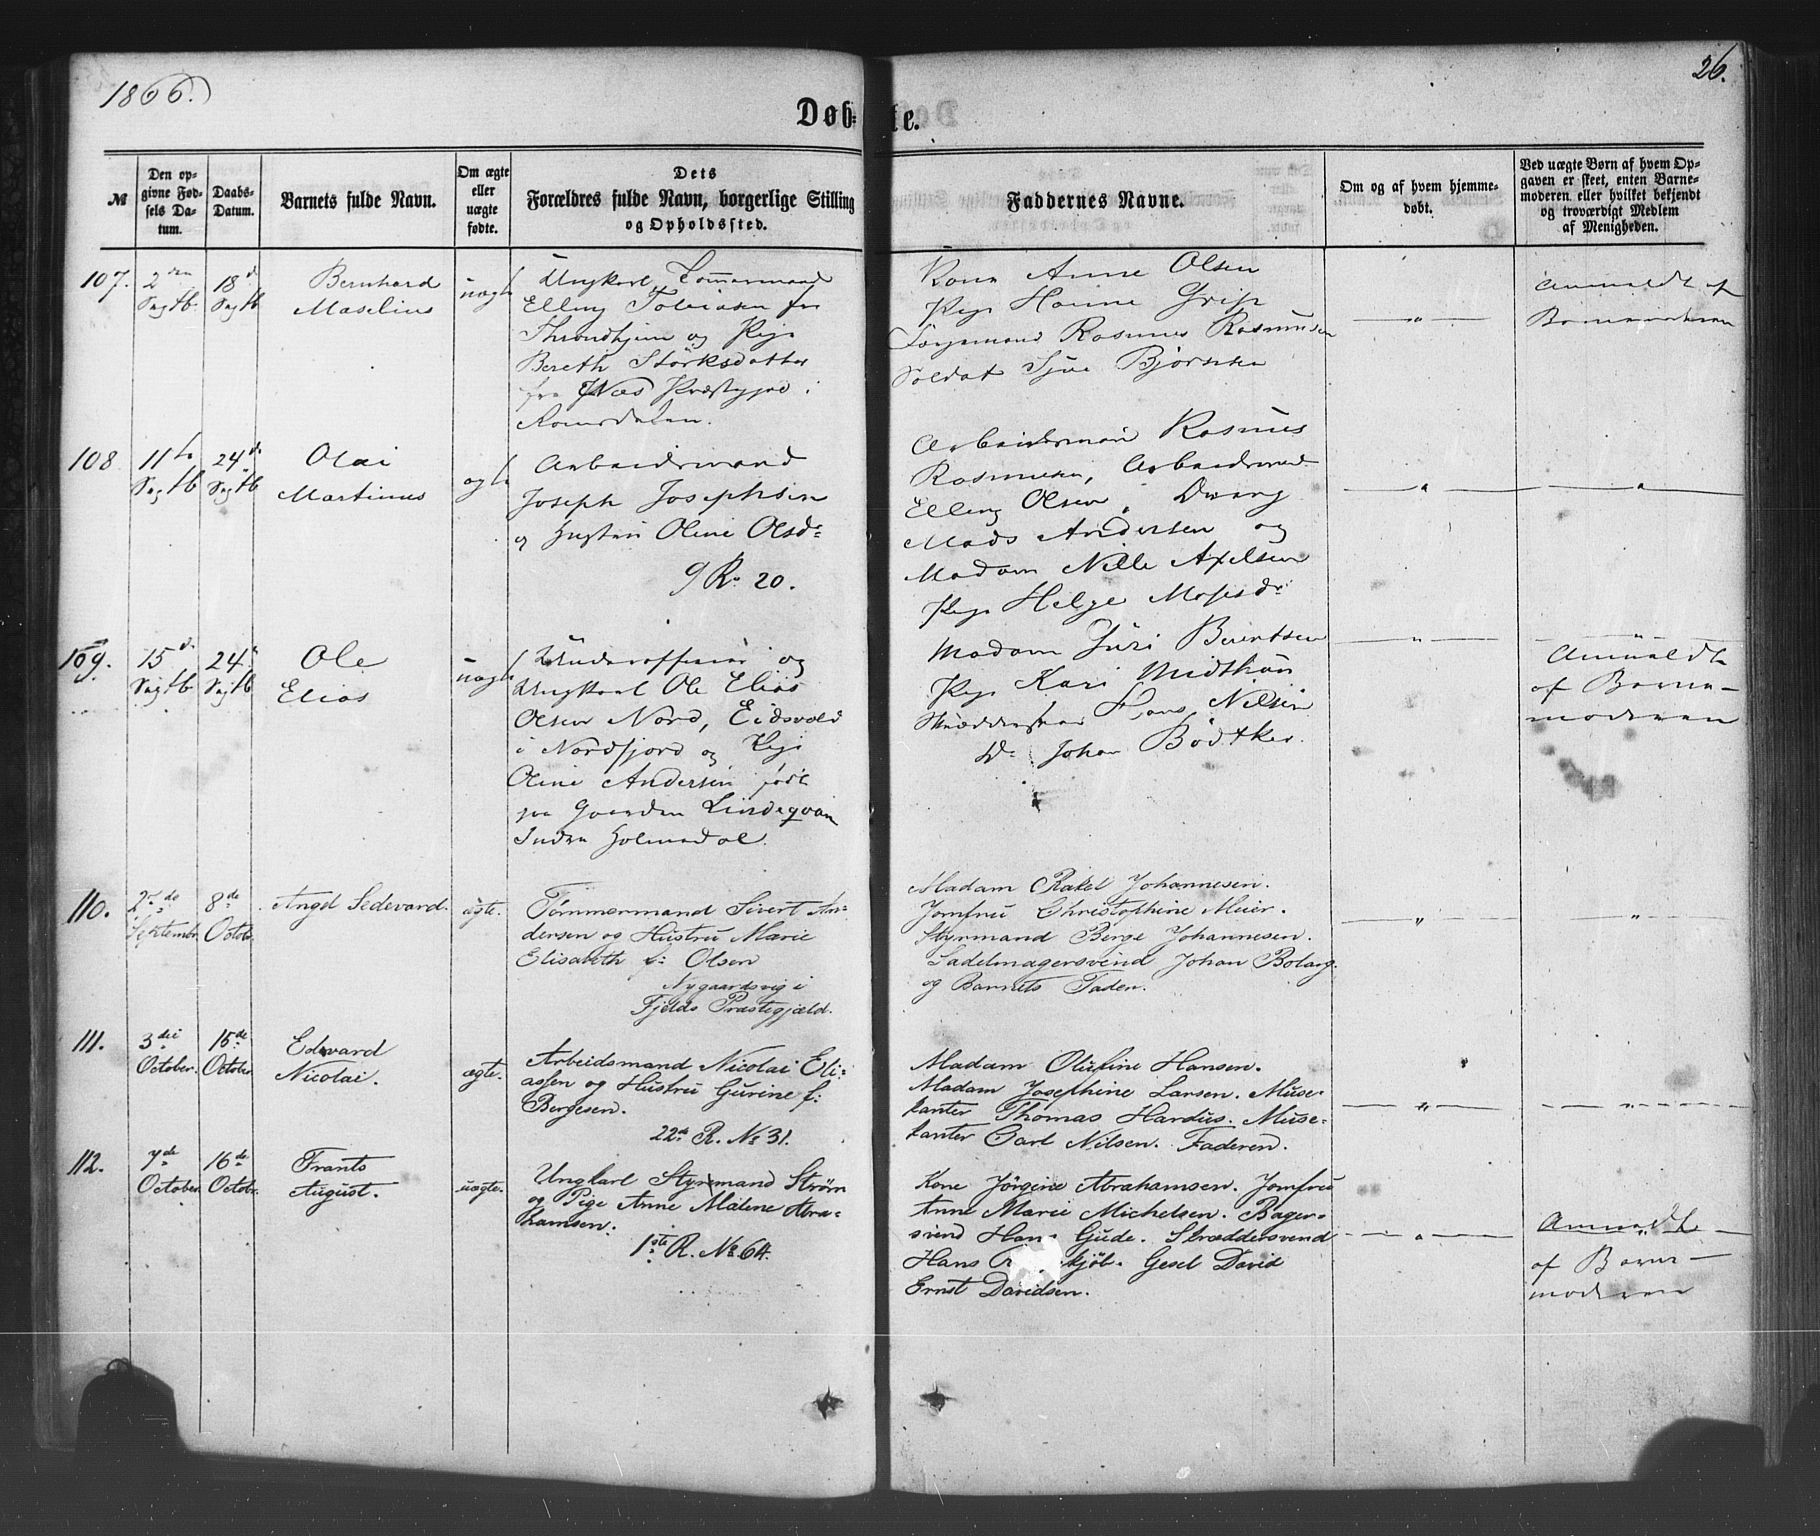 1866.
26.
Døbte.
№
Den opgivne Fødsels Datum.
Daabs-Datum.
Barnets fulde Navn.
Om ægte eller uægte fødte.
Dets
Forældres fulde Navn, borgerlige Stilling
og Opholdssted.
Faddernes Navne.
Om og af hvem hjemmedøbt.
Ved uægte Børn af hvem Opgaven er skeet, enten Barnemoderen eller hvilket bekjendt og troværdigt Medlem af Menigheden.
107.
2den Sept b.
18d Sept b.
Bernhard
Maselius
uægte
Ungkarl Tømmermand
Elling Tobiasen fra
Throndhjem og Pige
Bereth Störksdatter
fra Næs Præstegjæ i
Romsdalen.
Kone Anne Olsen
Pige Hanne Grip
Rasmus Rasmusen
Soldat Bjørnsen
"
Anmeldt af
Barnemoderen
108
11te Sept b.
24d Sept b.
Olai
Martinus
ægte
Arbeidsmand
Joseph Josephsen
og Hustru Oline Olsd:
9 R. 20.
Arbeidsmand Rasmus
Rasmusen, Arbeidsmand
Elling Olsen, Dreng
Mads Andersen og
Madam Nille Axelsen
Pige Helge Mosesd:
"
"
109.
15d Sept b.
24d Sept b.
Ole
Elias
uægte
Underofficier og
Ungkarl Ole Elias
Olsen Nord, Eidsvold
i Nordfjord og Pige
Oline Andersen født
paa Gaarden
Indre Holmedal.
Madam Guri Berentsen
Pige Kari Midthun
Skræddersvend Hans Nilsen
Do Johan Bödtker.
"
Anmeldt
af Barne-
moderen
110.
September
8de Octobr.
Angel Sedevard.
ægte.
Tømmermand Sivert An-
dersen og Hustru Marie
Elisabeth f: Olsen
Nygaardsvig i
Fjelds Præstegjæld.
Madam Rakel Johannesen.
Jomfru Christophine Meier.
Styrmand Berge Johannesen.
Sadelmagersvend Johan Bolarg.
og Barnets Fader.
"
"
111.
3die October.
15de October
Edevard
Nicolai.
ægte.
Arbeidsmand Nicolai Eli-
assen og Hustru Gurine f:
Bergesen.
22de R. № 31.
Madam Olufine Hansen.
Madam Josephine Larsen. Muse-
kanter Thomas Hardus. Muse-
kanter Carl Nilsen. Faderen.
"
"
112.
7de October.
16de Octobr.
Frants
August.
uægte.
Ungkarl Styrmand Strøm
og Pige Anne Malene Abra-
hamsen.
1ste R. № 64.
Kone Jörgine Abrahamsen. Jomfru
Anne Marie Michelsen. Bager-
svend Hans Gude. Skræddersvend
Hans kjöb. Gesel David
Ernst Davidsen.
"
Anmeldt
af Barne-
moderen